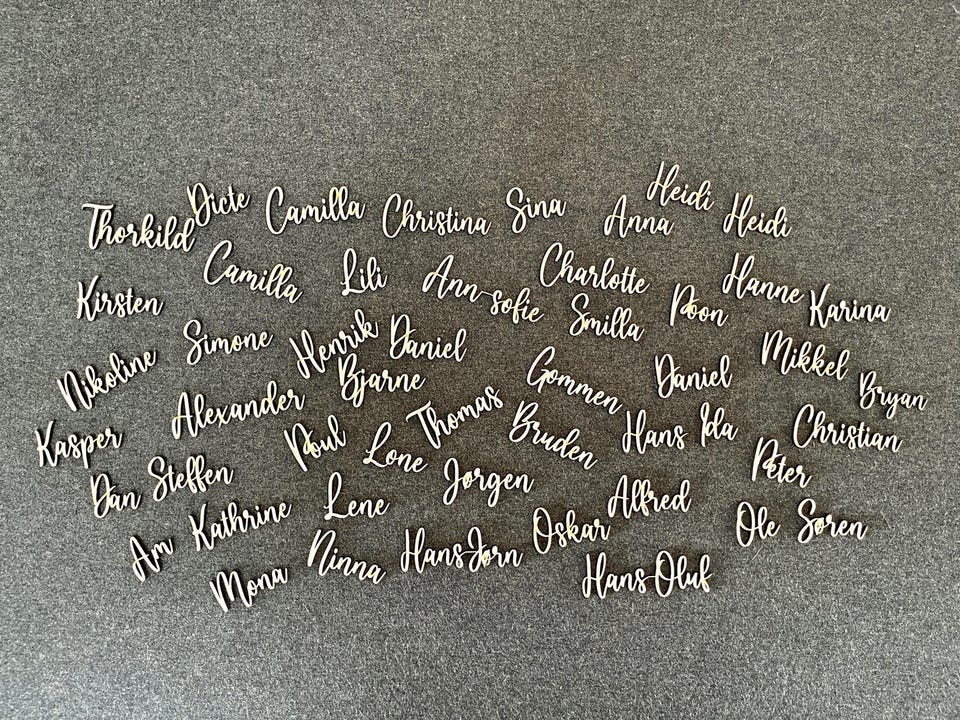 Thorkild
Dicte
Camilla
Christina
Sina
Anna
Heidi
Heidi
Kirsten
Camilla
Lili
Ann-sofie
Charlotte
Smilla
Poon
Hanne
Karina
Nikoline
Simone
Henrik
Daniel
Bjarne
Gommen
Daniel
Mikkel
Bryan
Kasper
Alexander
Poul
Lone
Thomas
Bruden
Hans
Ida
Christian
Peter
Dan
Steffen
Lene
Jørgen
Alfred
Ole
Søren
Am
Kathrine
Mona
Ninna
HansJørn
Oskar
Hans-Oluf